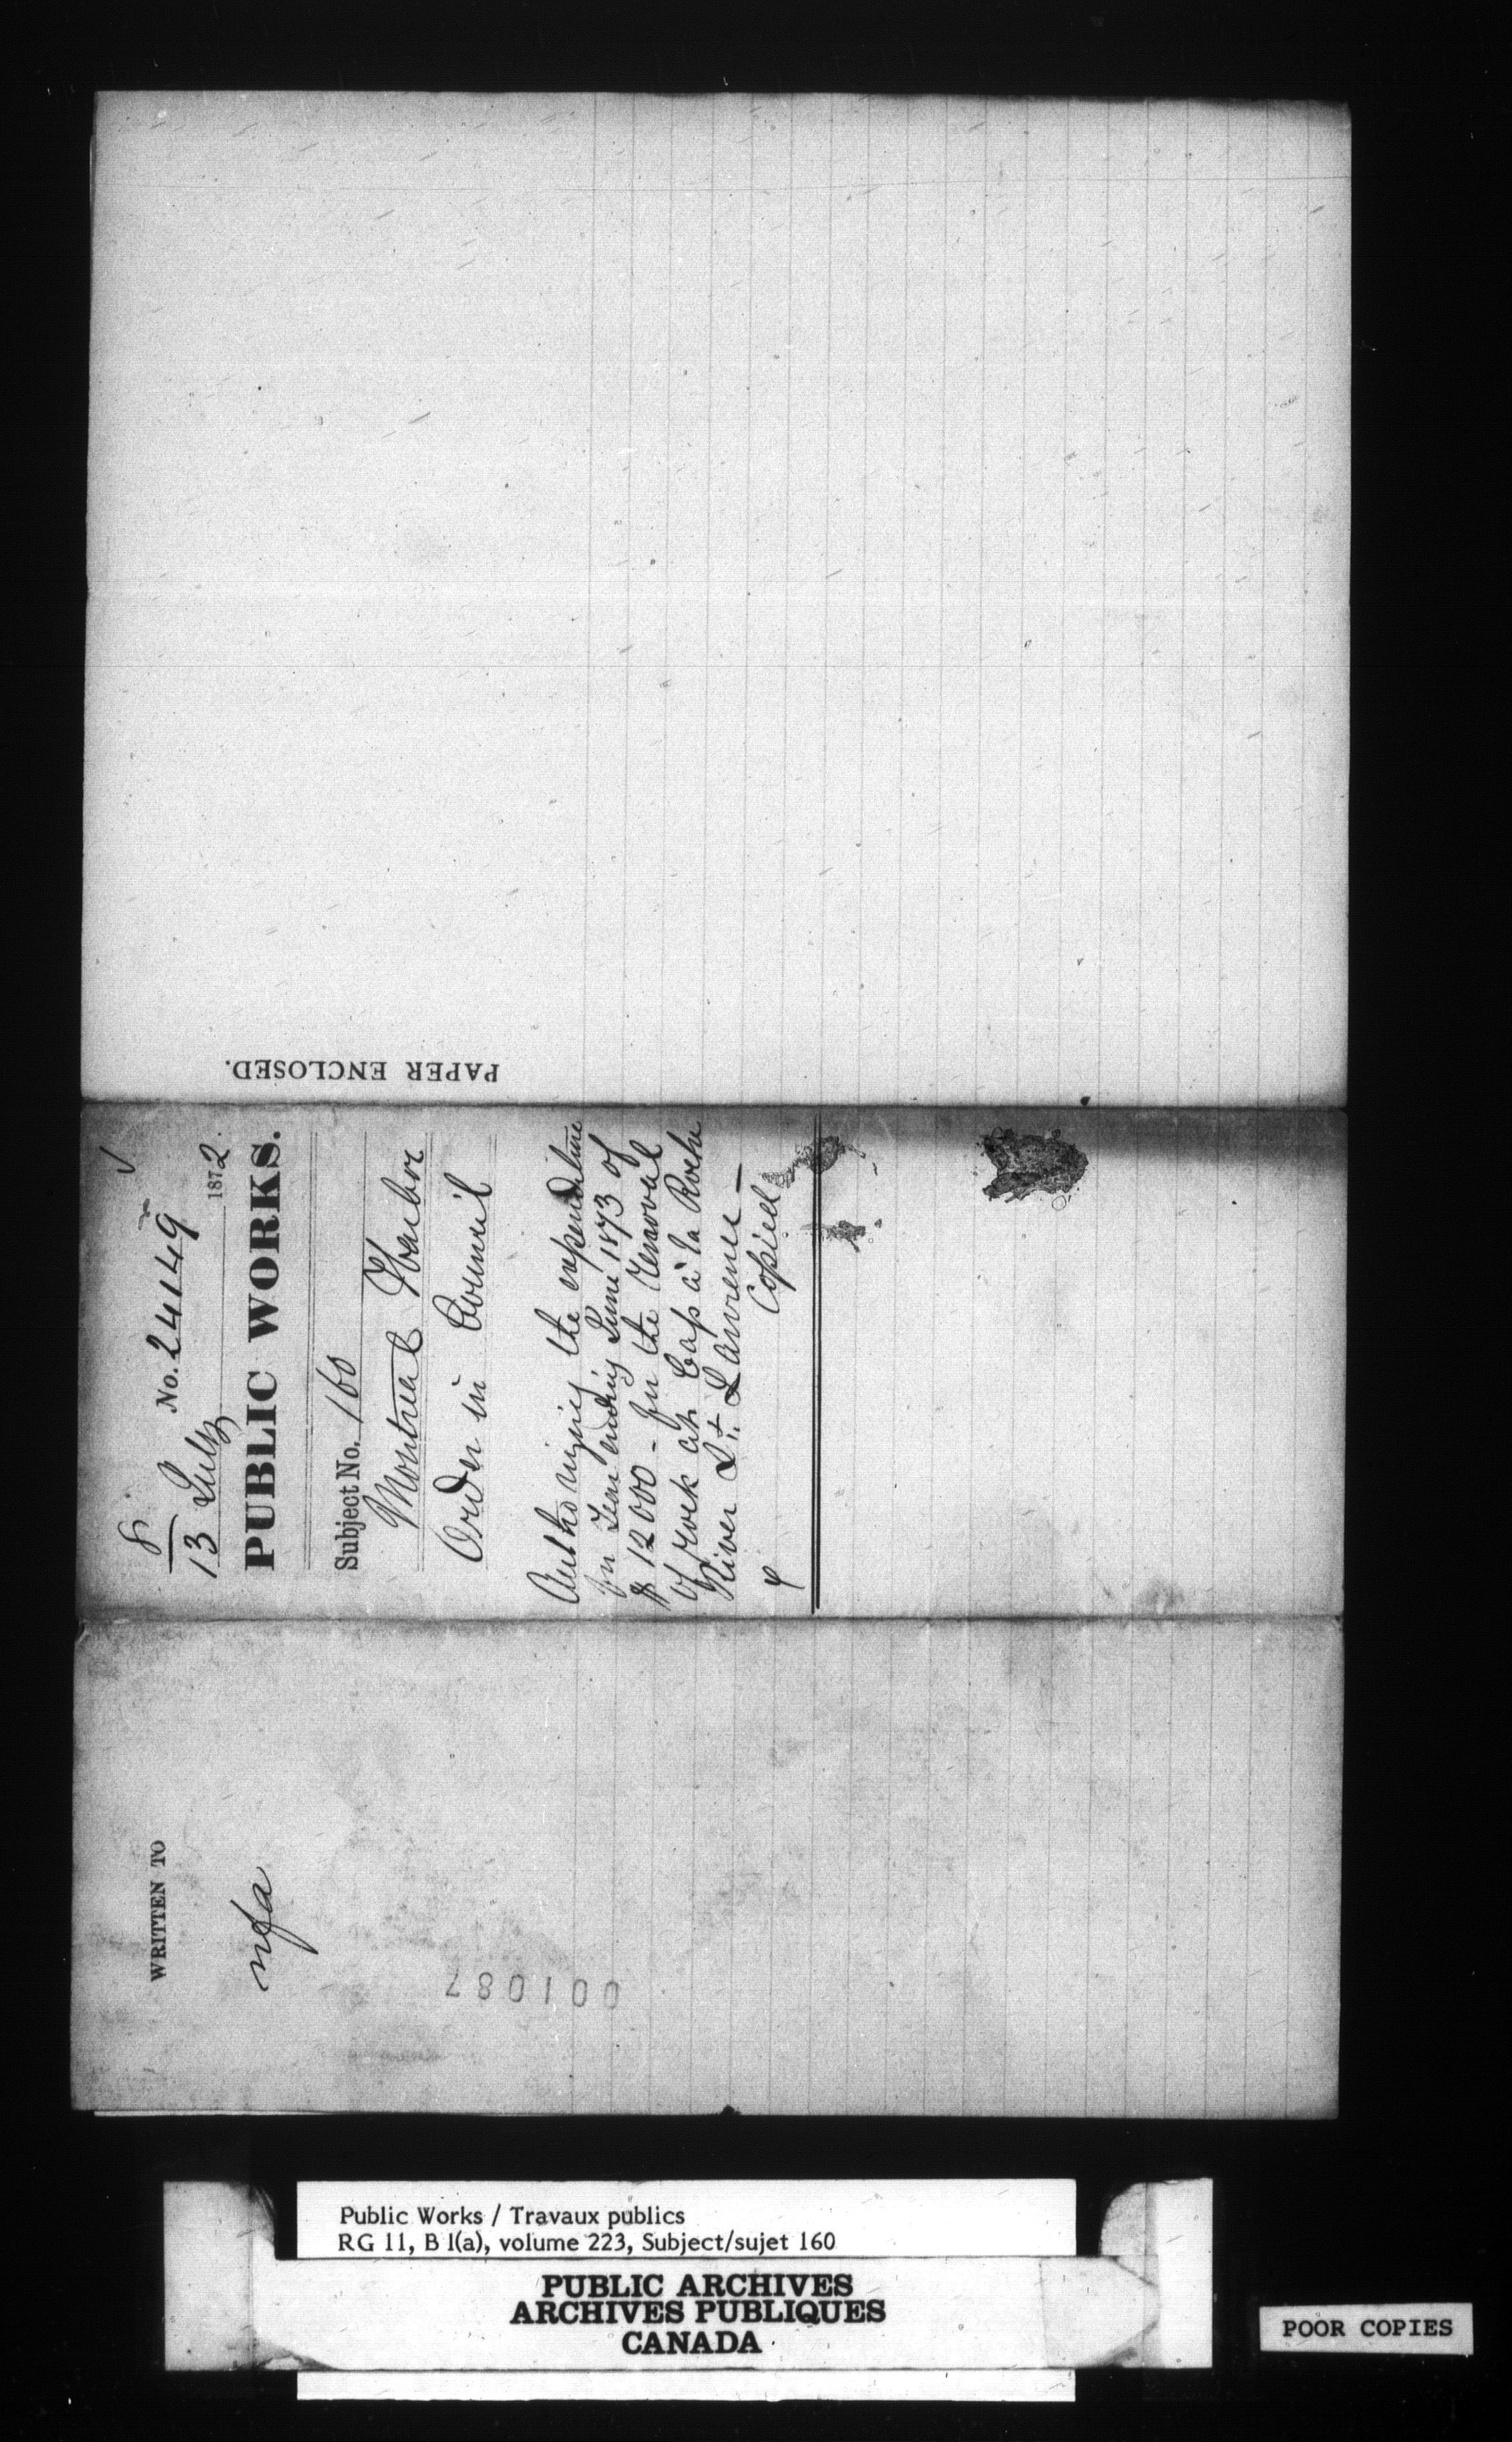 PAPER ENCLOSED.
8
No. 24149
13 July 1872.
PUBLIC WORKS.
Subject No. 160
Montreal Harbor
Order in Council
Authorizing the expenditure
for Year ending June 1873 of
$12000 - for the removal
of rock at Cap à la Roche
River St. Lawrence -
Copied
WRITTEN TO
nfa
001087
Public Works / Travaux publics
RG 11, B 1(a), volume 223, Subject/sujet 160
PUBLIC ARCHIVES
ARCHIVES PUBLIQUES
CANADA
POOR COPIES